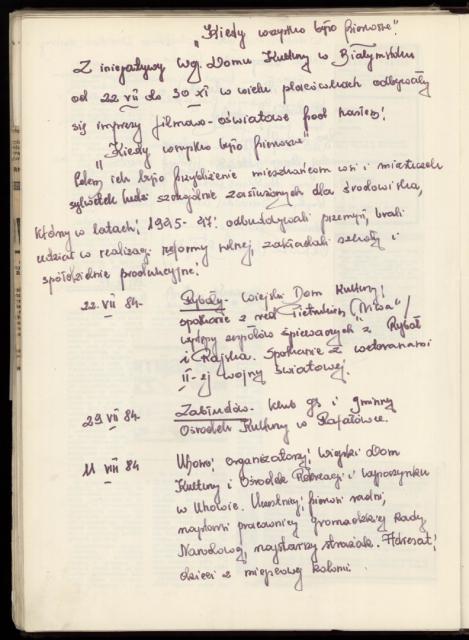 „Kiedy wszystko było pierwsze".
Z inicjatywy Woj. Domu Kultury w Białymstoku
od 22 VII do 30 XI w wielu placówkach odbywały
się imprezy filmowo-oświatowe pod hasłem:
„Kiedy wszystko było pierwsze"
Celem ich było przybliżenie mieszkańcom wsi i miasteczek
sylwetek ludzi szczególnie zasłużonych dla środowiska,
którzy w latach: 1945-47: odbudowywali przemysł, brali
udział w realizacji reformy rolnej, zakładali szkoły i
spółdzielnie produkcyjne.
22. VII 84- Ryboły- Wiejski Dom Kultury:
spotkanie z red. ("Niwa") /
występy zespołów śpiewaczych z Rybół
i Rajska. Spotkanie z weteranami
II-ej wojny światowej.
29 VII 84- Zabłudów- klub gs i Gminny
Ośrodek Kultury w Rafałówce.
11 VIII 84 Uhowo: organizatorzy: Wiejski Dom
Kultury i Ośrodek Rekreacji i Wypoczynku
w Uhowie. Uczestnicy: pierwsi radni,
najstarsi pracownicy Gromadzkiej Rady
Narodowej, najstarszy strażak. Adresat:
dzieci z miejscowej kolonii.